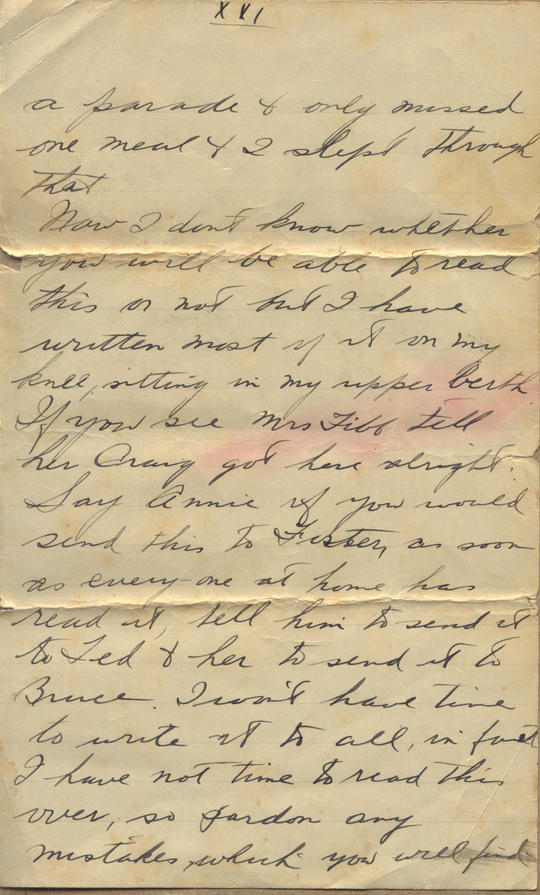 XXI
a parade & only missed
one meal & I slept through
that
Now I don't know whether
you will be able to read
this or not but I have
written most of it on my
knee, sitting in my upper berth
If you see Mrs Tibb tell
her Craig got here alright.
Say Annie if you would
send this to Fister, as soon
as every-one at home has
read it, tell him to send it
to Led & her to send it to
Bruce. I won't have time
to write it to all, in fact
I have not time to read this
over, so pardon any
mistakes, which you will find